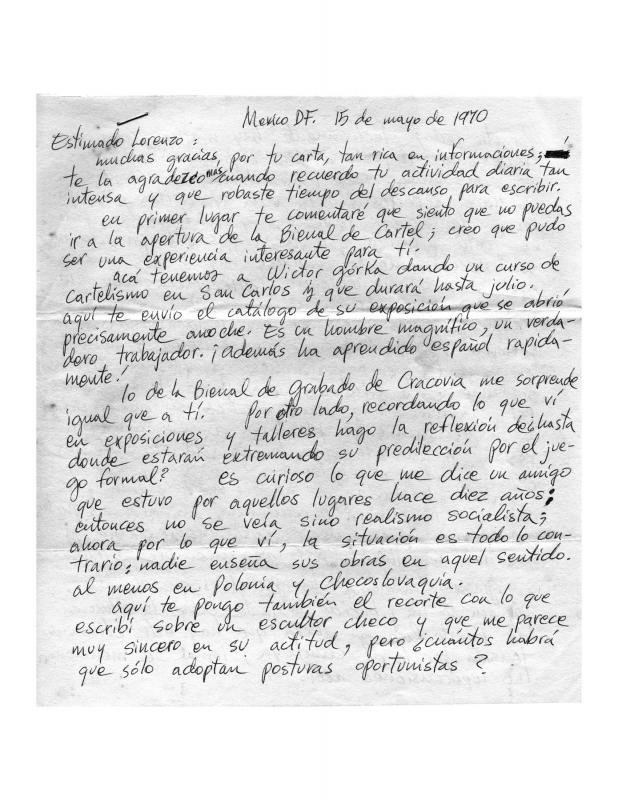 Mexico DF. 15 de mayo de 1970
Estimado Lorenzo:
muchas gracias, por tu carta, tan rica en informaciones;
te la agradezco más cuando recuerdo tu actividad diaria tan
intensa y que robaste tiempo del descanso para escribir.
en primer lugar te comentaré que siento que no puedas
ir a la apertura de la Bienal de Cartel; creo que pudo
ser una experiencia interesante para tí.
acá tenemos a Wictor górka dando un curso de
cartelismo en San Carlos y que durará hasta julio.
aquí te envío el catálogo de su exposición que se abrió
precisamente anoche. Es un hombre magnífico, un verda-
dero trabajador. ¡Además ha aprendido español rapida-
mente!
lo de la Bienal de Grabado de Cracovia me sorprende
igual que a tí. Por otro lado, recordando lo que ví
en exposiciones y talleres hago la reflexión de ¿hasta
donde estarán extremando su predilección por el jue-
go formal? es curioso lo que me dice un amigo
que estuvo por aquellos lugares hace diez años;
entonces no se veía sino realismo socialista;
ahora por lo que ví, la situación es todo lo con-
trario; nadie enseña sus obras en aquel sentido.
al menos en Polonia y Checoslovaquia.
aquí te pongo también el recorte con lo que
escribí sobre un escultor checo y que me parece
muy sincero en su actitud, pero ¿cuántos habrá
que sólo adoptan posturas oportunistas?